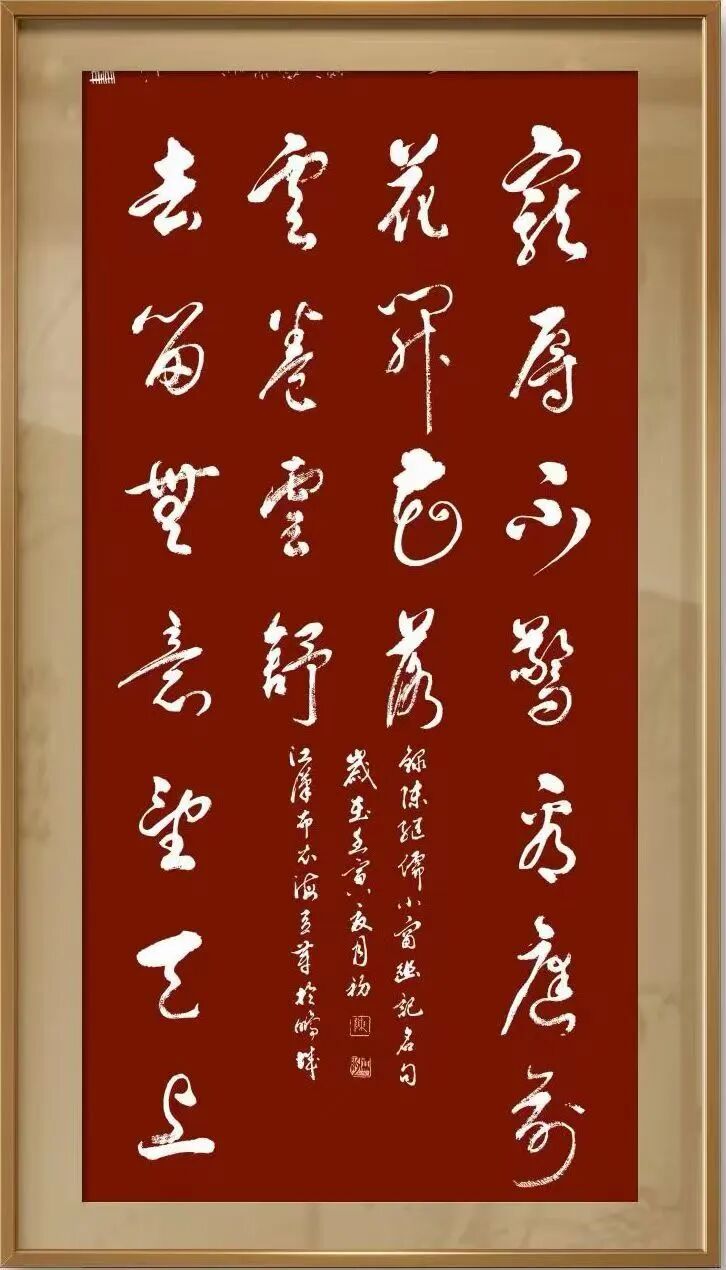 寵辱不驚看庭前
花開花落
去留無意望天上
雲卷雲舒
錄陳繼儒小窗幽記名句
歲在壬寅月初
江漢布衣海草於鵬城